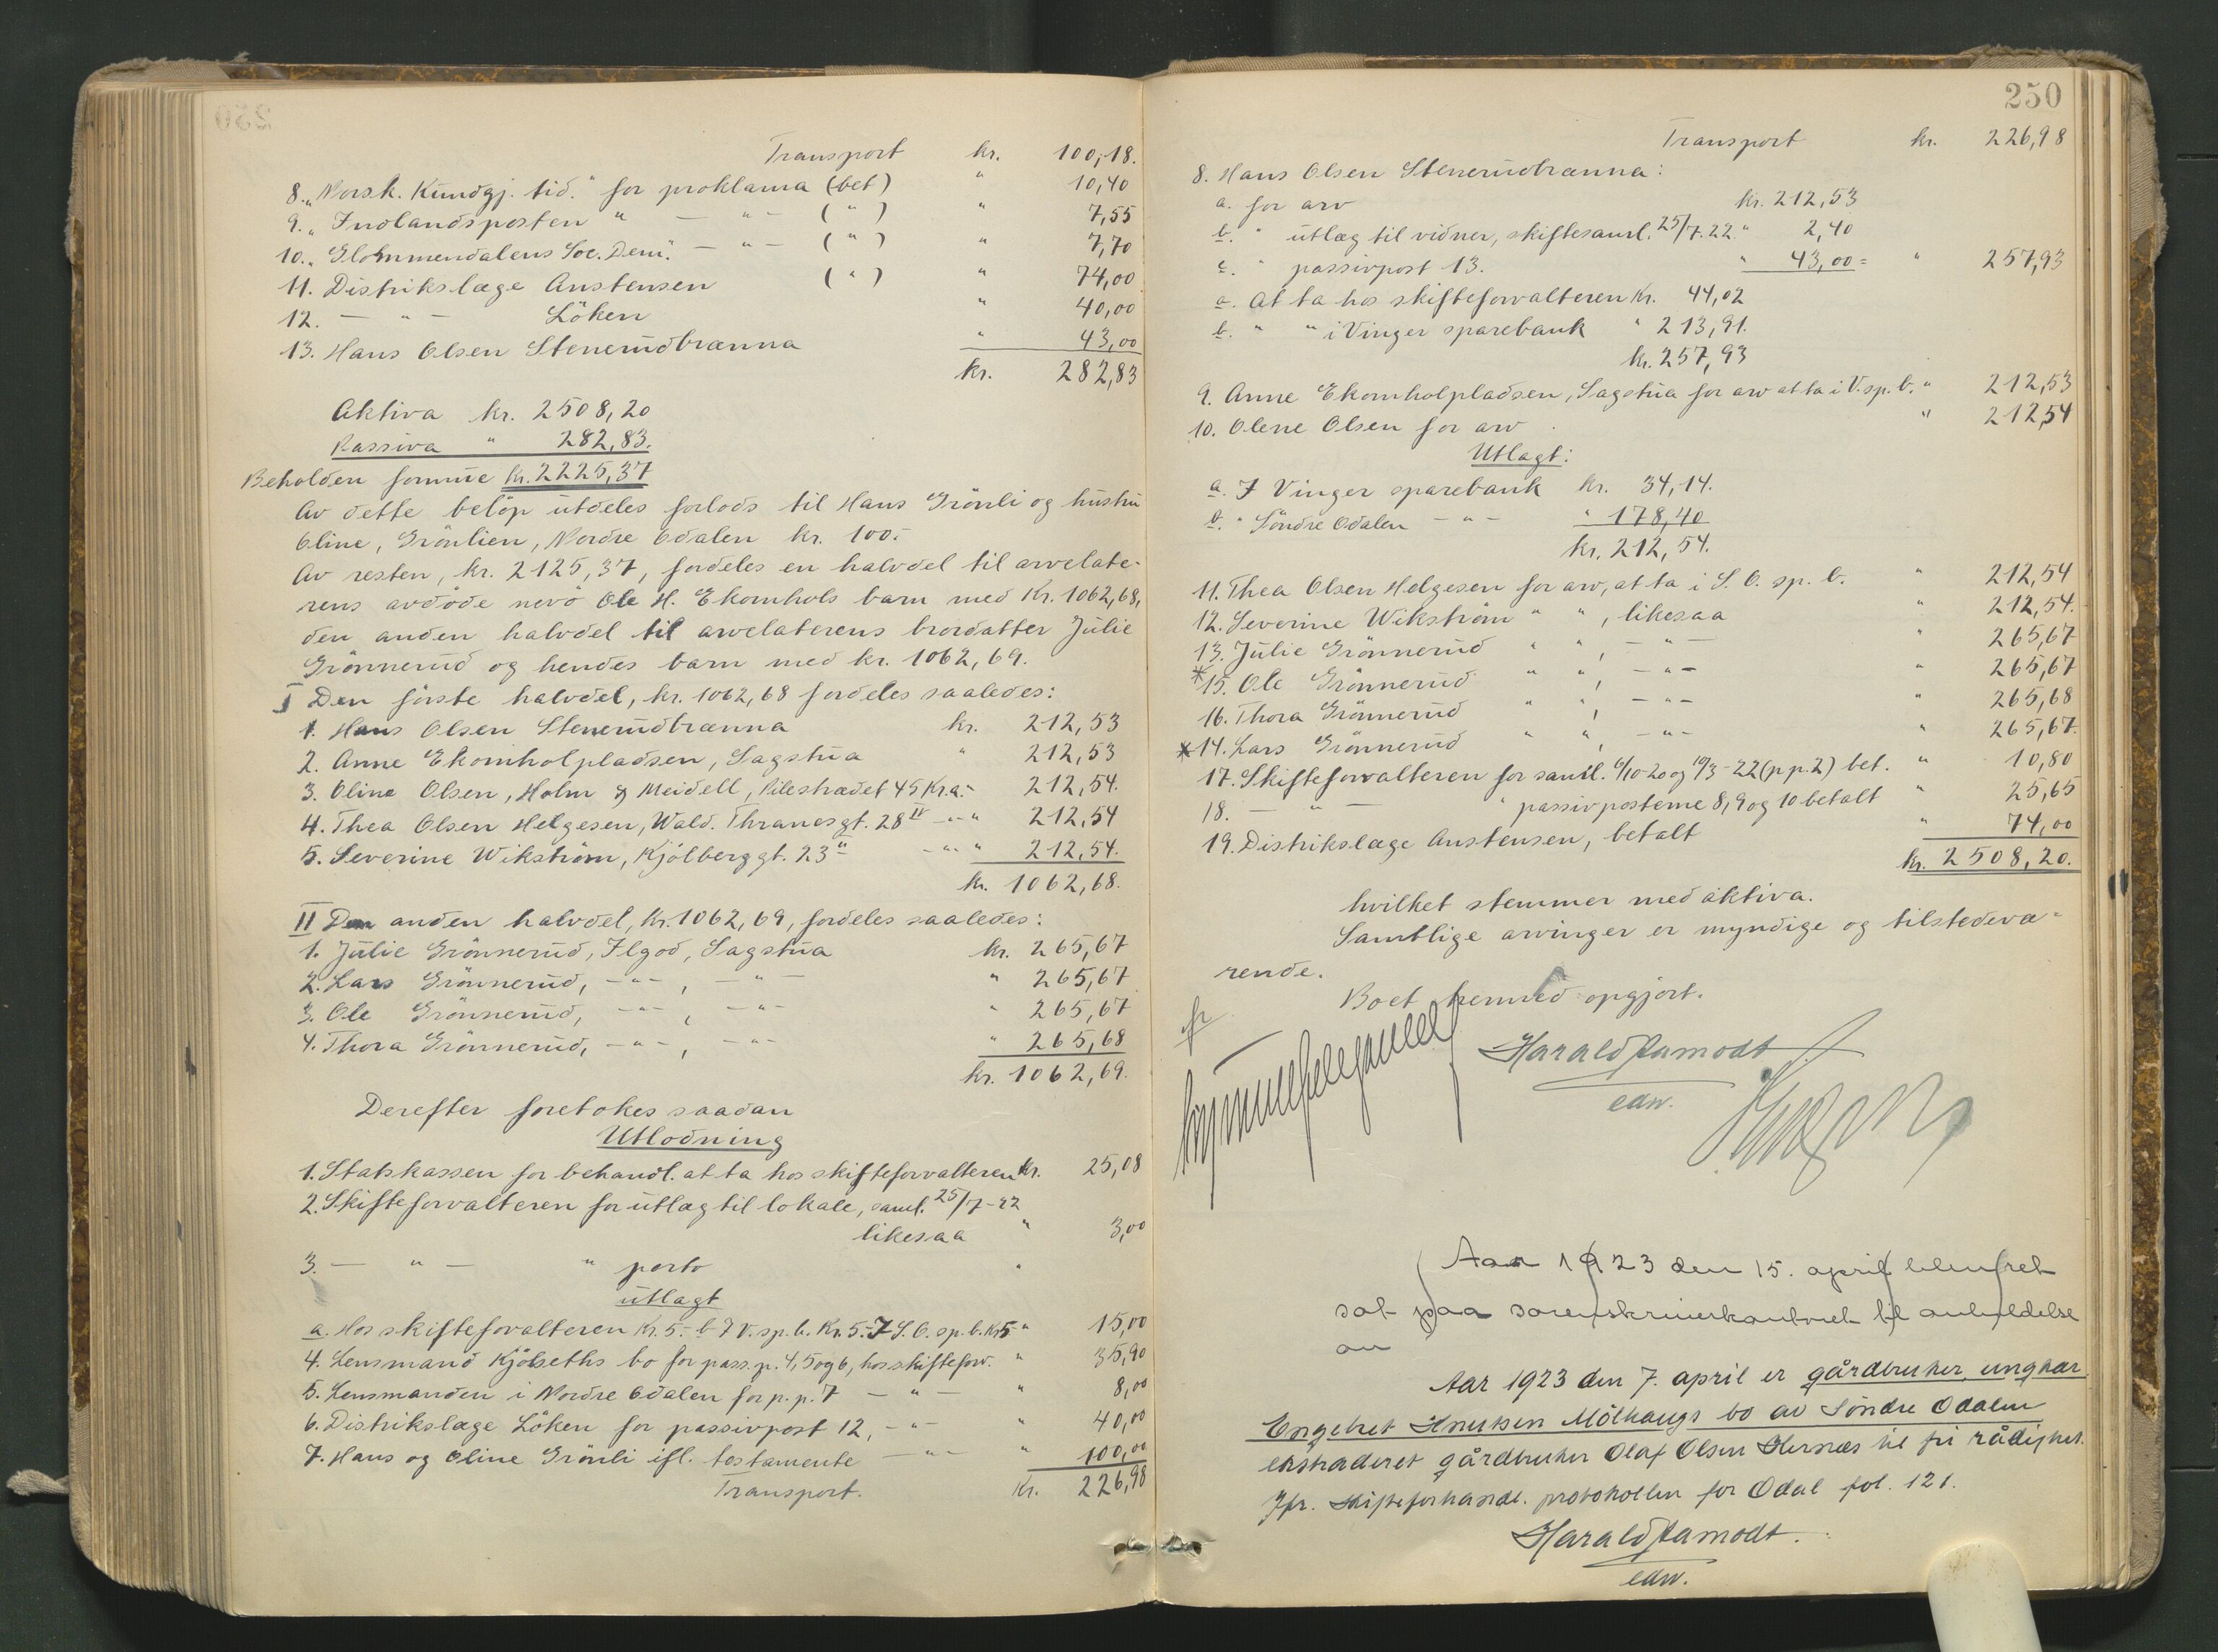 Transport kr. 100,18.
8. „Norsk. Kundgj. tid." for proklama (bet) " 10,40
9. „Indlandsposten " — " — ( " ) " 7,55
10. „Glommendalens Soc. Dem." — " — ( " ) " 7,70
11. Distrikslæge Austensen ( " ) " 74,00
12. — " — Löken " 40,00
13. Hans Olsen Stenerudbrænna " 43,00
kr. 282,83
Aktiva kr. 2508,20
Passiva " 282,83.
Beholden somme kr. 2225,37
Av dette belöp utdeles forlods til Hans Grönli og hustru
Oline, Grönlien, Nordre Odalen kr. 100.-
Av resten, kr. 2125,37, fordeles en halvdel til arvelate-
rens avdöde nevö Ole H. Ekornhols barn med Kr. 1062,68,
den anden halvdel til arvelaterens brordatter Julie
Grönnerud og hendes barn med kr. 1062,69.
I Den förste halvdel, kr. 1062,68 fordeles saaledes:
1. Hans Olsen Stenerudbrænna kr. 212,53
2. Anne Ekornholpladsen, Sagstua " 212,53
3. Oline Olsen, Holm & Meidell, Pilestrædet 45 Kr.a. " 212,54.
4. Thea Olsen Helgesen, Wald. Thranesgt. 28 IV — " — " 212,54
5. Severine Wikström, Kjölberggt. 23 II — " — " 212,54.
kr. 1062,68.
II Den anden halvdel, Kr. 1062,69, fordeles saaledes:
1. Julie Grönnerud, Ilgod, Sagstua kr. 265,67
2. Lars Grönnerud, — " — , — " — " 265,67
3. Ole Grönnerud, — " — , — " — " 265,67
4. Thora Grönnerud, — " — , — " — " 265,68
kr. 1062,69.
Derefter foretokes saadan
Utlodning
1. Statskassen for behandl. at ta hos skifteforvalteren kr. 25,08
2. Skifteforvalteren for utlæg til lokale, saml. 25/7-22
likesaa " 3,00
3. — " — " porto "
utlagt
a. Hos skifteforvalteren Kr. 5.- b I V. sp. b. Kr. 5.- I S. O. sp. b. Kr 5 " 15,00
4. Lensmand Kjölseths bo for pass. p. 4, 5 og 6, hos skifteforv. " 35,90
5. Lensmanden i Nordre Odalen for p. p. 7 — " — " 8,00
6. Distrikslæge Löken for passivpost 12, — " — " 40,00
7. Hans og Oline Grönli ifl. testamente — " — " 100,00
Transport. Kr. 226,98
250
Transport kr. 226,98
8. Hans Olsen Stenerudbrænna:
a. for arv kr. 212,53
b. " utlæg til vidner, skiftesaml. 25/7.22. " 2,40
c. " passivpost 13. " 43,00 = " 257,93
a. At ta hos skifteforvalteren Kr. 44,02
b. " " i Vinger sparebank " 213,91.
kr. 257,93
9. Anne Ekornholpladsen, Sagstua for arv at ta i V. sp. b. " 212,53
10. Olene Olsen for arv " 212,54
Utlagt:
a. I Vinger sparebank kr. 34,14.
b. " Söndre Odalen — " — " 178,40
kr. 212,54.
11. Thea Olsen Helgesen for arv, at ta i S. O. sp. b. " 212,54
12. Severine Wikström " " , likesaa " 212,54.
13. Julie Grönnerud " " , — " — " 265,67
*15. Ole Grönnerud " " , — " — " 265,67
16. Thora Grönnerud " " , — " — " 265,68
*14. Lars Grönnerud " " , — " — " 265,67.
17. Skifteforvalteren for saml. 6/10-20 og 10/3-22 (p p. 2) bet. " 10,80
18. — " — " passivposterne 8, 9 og 10 betalt " 25,65
19. Distrikslæge Austensen, betalt " 74,00
kr. 2508,20.
hvilket stemmer med aktiva.
Samtlige arvinger er myndige og tilstedevæ-
rende.
Boet hermed opgjort.
Harald Aamodt
edsv.
Aar 1923 den 15. april blev ret
sat paa sorenskriverkontoret til avholdelse
av
Aar 1923 den 7. april er gårdbruker, ungkar
Engebret Knutsen Mölhaugs bo av Söndre Odalen
ekstraderet gårdbruker Olaf Olsen Hernæs til fri rådighet.
Jfr. skifteforhandl. protokollen for Odal fol. 121.
Harald Aamodt.
edsv.